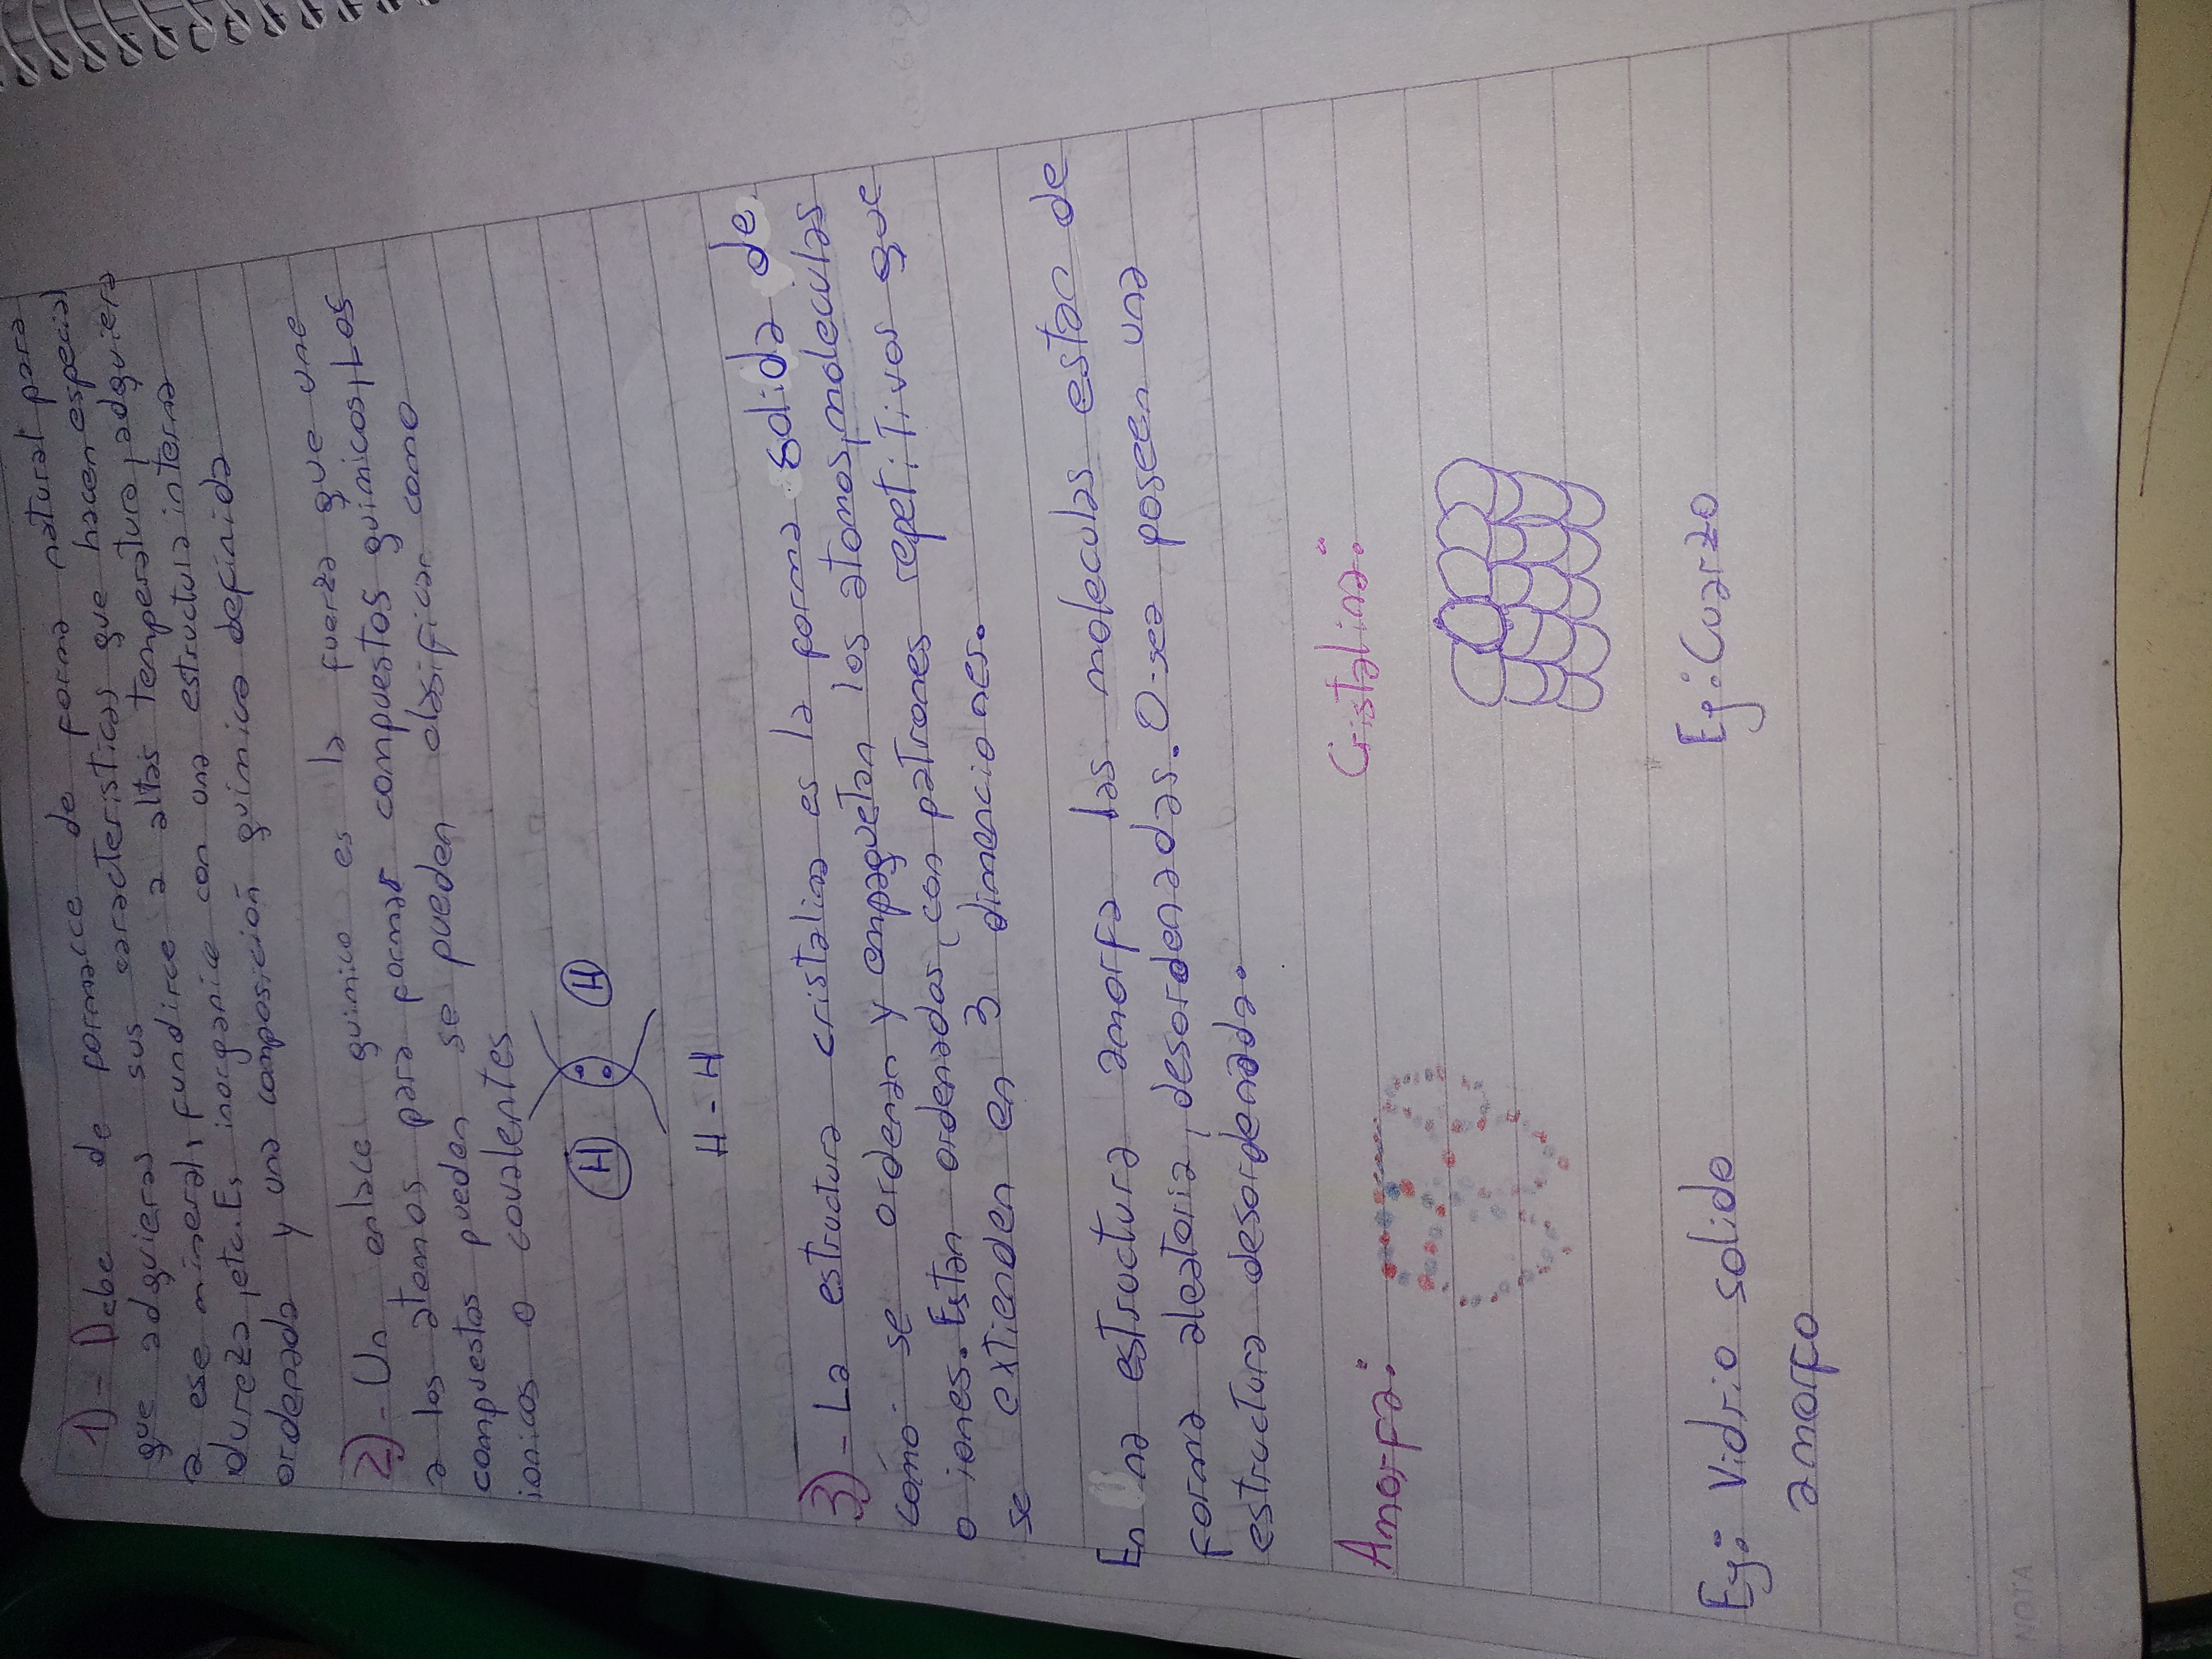 1)- Debe de formarce de forma natural para
que adquieras sus caracteristicas que hacen especial
a ese mineral, fundirce a altas temperatura, adquiera
dureza, etc. Es inorganico con una estructura interna
ordenada y una composición quimica definida
2)- Un enlace quimico es la fuerza que une
a los atomos para formar compuestos quimicos, Los
compuestos pueden se pueden clasificar como
ionicos o covalentes
H : H
H-H
3)- La estructura cristalina es la forma solida de
como se ordenan y empaquetan los atomos, moleculas
o iones. Estan ordenados con patrones repetitivos que
se extienden en 3 dimenciones.
En una estructura amorfa las moleculas estan de
forma aleatoria, desordenadas. O sea poseen una
estructura desordenada.
Amorfa: Cristalina:
Ej: Vidrio solido Ej: Cuarzo
amorfo
NOTA